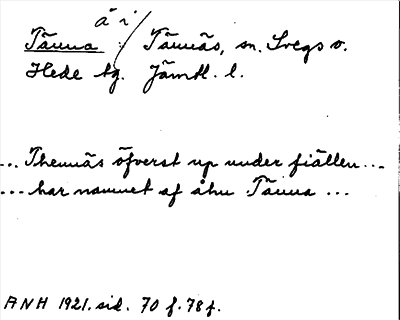 å i
Tänna / Tännäs, sn. Svegs o.
Hede tg. Jämtl. l.
... Thennäs öfverst up under fiällen ...
... har namnet af åhn Tänna ...
ANH 1921. sid. 70 f. 78 f.